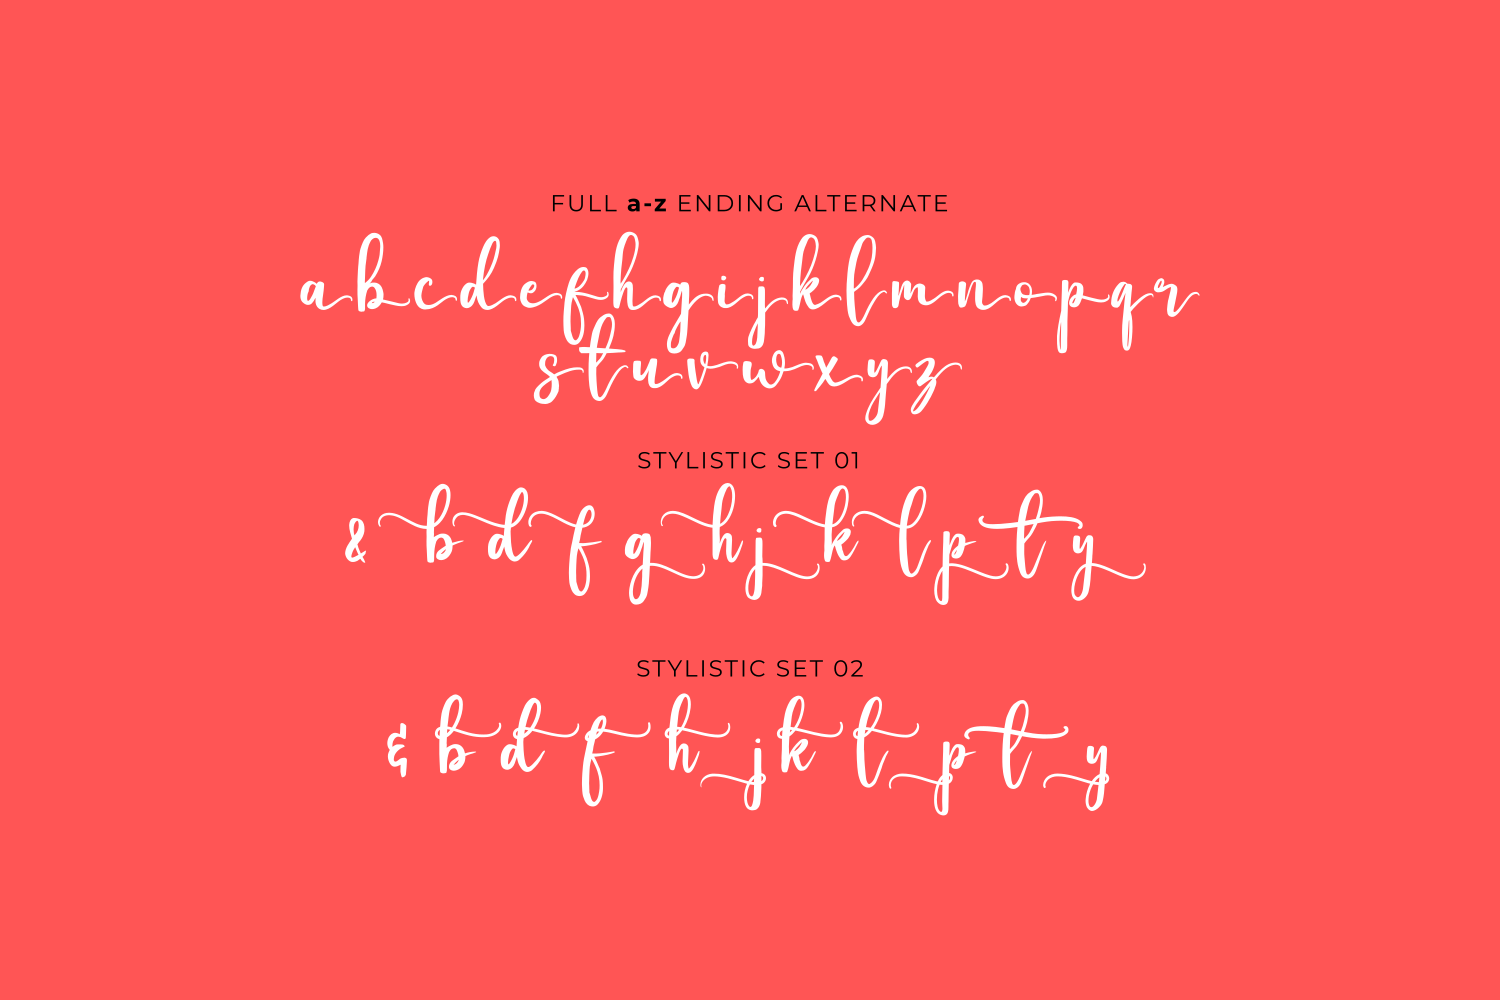 FULL a-z ENDING ALTERNATE
abcdefhgijklmnopqr
stuvwxyz
STYLISTIC SET 01
& b d f g h j k l p t y
STYLISTIC SET 02
& b d f h j k l p t y